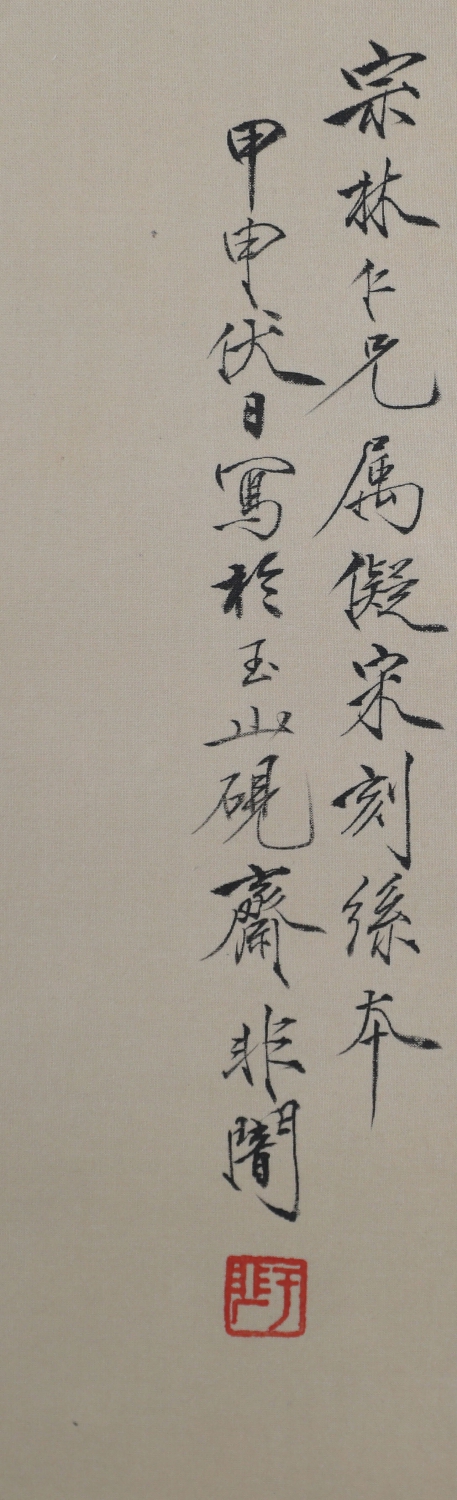 宗林仁兄属儗宋刻絲本
甲申伏日寫於玉山硯齋非闇
于非